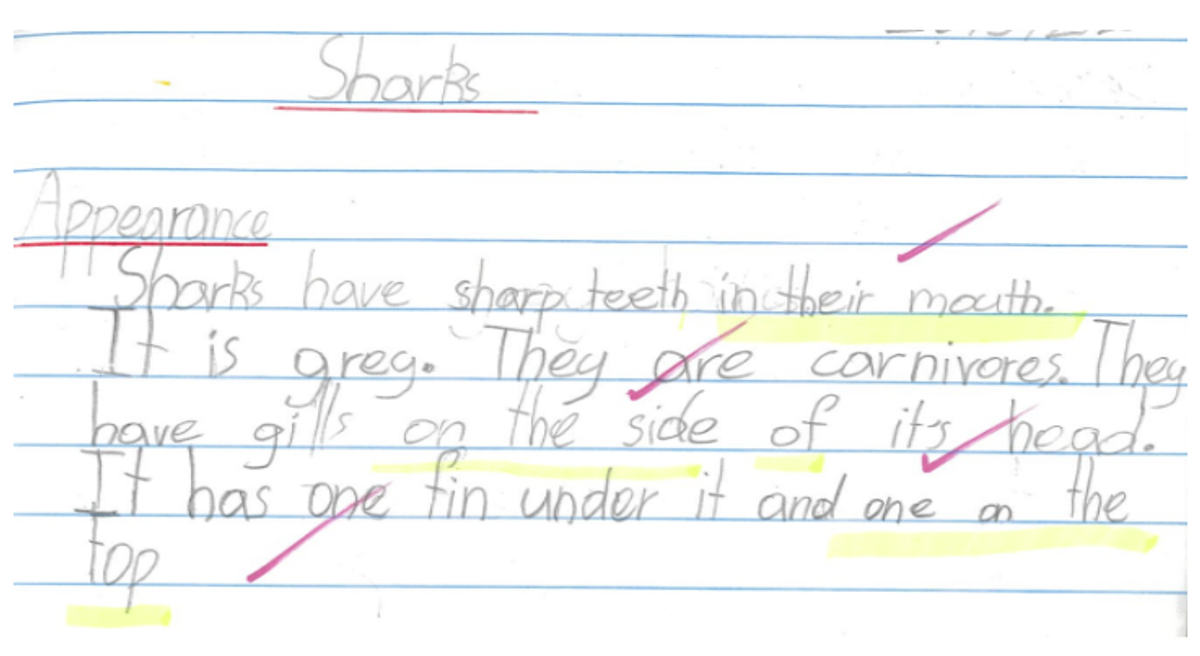 Sharks
Appearance
Sharks have sharp teeth in their mouth.
It is grey. They are carnivores. They
have gills on the side of it's head.
It has one fin under it and one on the
top